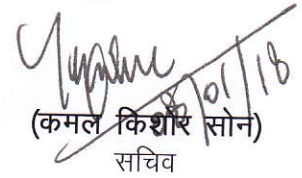 08/01/18
(कमल किशोर सोन)
सचिव